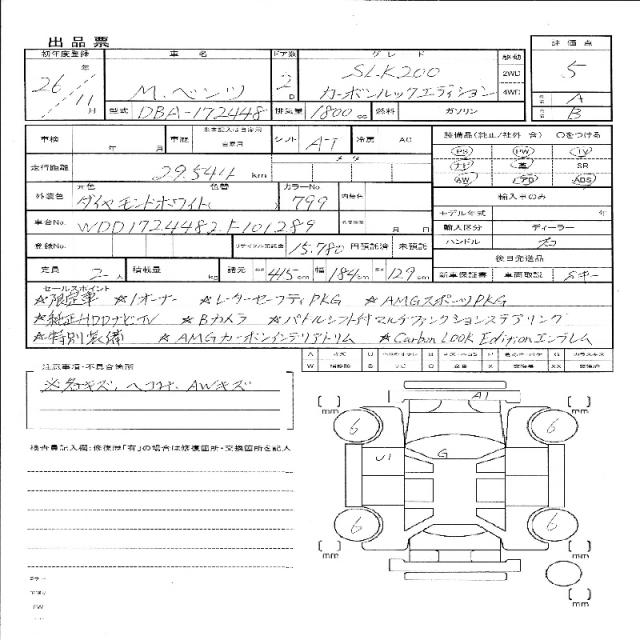 出品票
初年度登録 車名 ドア数 グレード 駆動 評価点
26年 11月 M.ベンツ 2D SLK200 2WD 5
カーボンルックエディション 4WD A
型式 DBA-172448 排気量 1800cc 燃料 ガソリン B
車検 年 月 車歴 自家用 シフト A-T 冷房 AC 装備品(純正/社外 含) ○をつける
走行距離 29.544 km PS PW TV
ナビ 革 SR
AW ADS
外装色 元色 色替 カラーNo 内装色
ダイヤモンドホワイト( 799 輸入車のみ
車台No. WDD1724482F101289 年 月 モデル年式 年
輸入区分 ディーラー
登録No. リサイクル預託金 15.780 円預託済 未預託 ハンドル 右
後日発送品
定員 2人 積載量 kg 諸元 長さ 415cm 幅 184cm 高さ 129cm 新車保証書 車両取説
セールスポイント
☆限定車 ☆1オーナー ☆レーダーセーフティPKG ☆AMGスポーツPKG
☆純正HDDナビTV ☆Bカメラ ☆パドルシフト付マルチファンクションステアリング
☆特別装備 ☆AMGカーボンインテリアトリム ☆Carbon LOOK Editionエンブレム
注意事項・不具合箇所
※各キズ、ヘコミ、AWキズ
検査員記入欄:修復歴「有」の場合は修復箇所・交換箇所を記入
A1
mm mm
6 6
U1 G
6 6
mm mm
mm